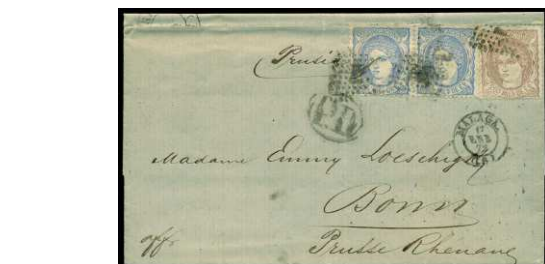 Prusia
PD
MALAGA
17
ENE
72
Madame Emmy Loeschigk
Bonn
Prusse Rhenane